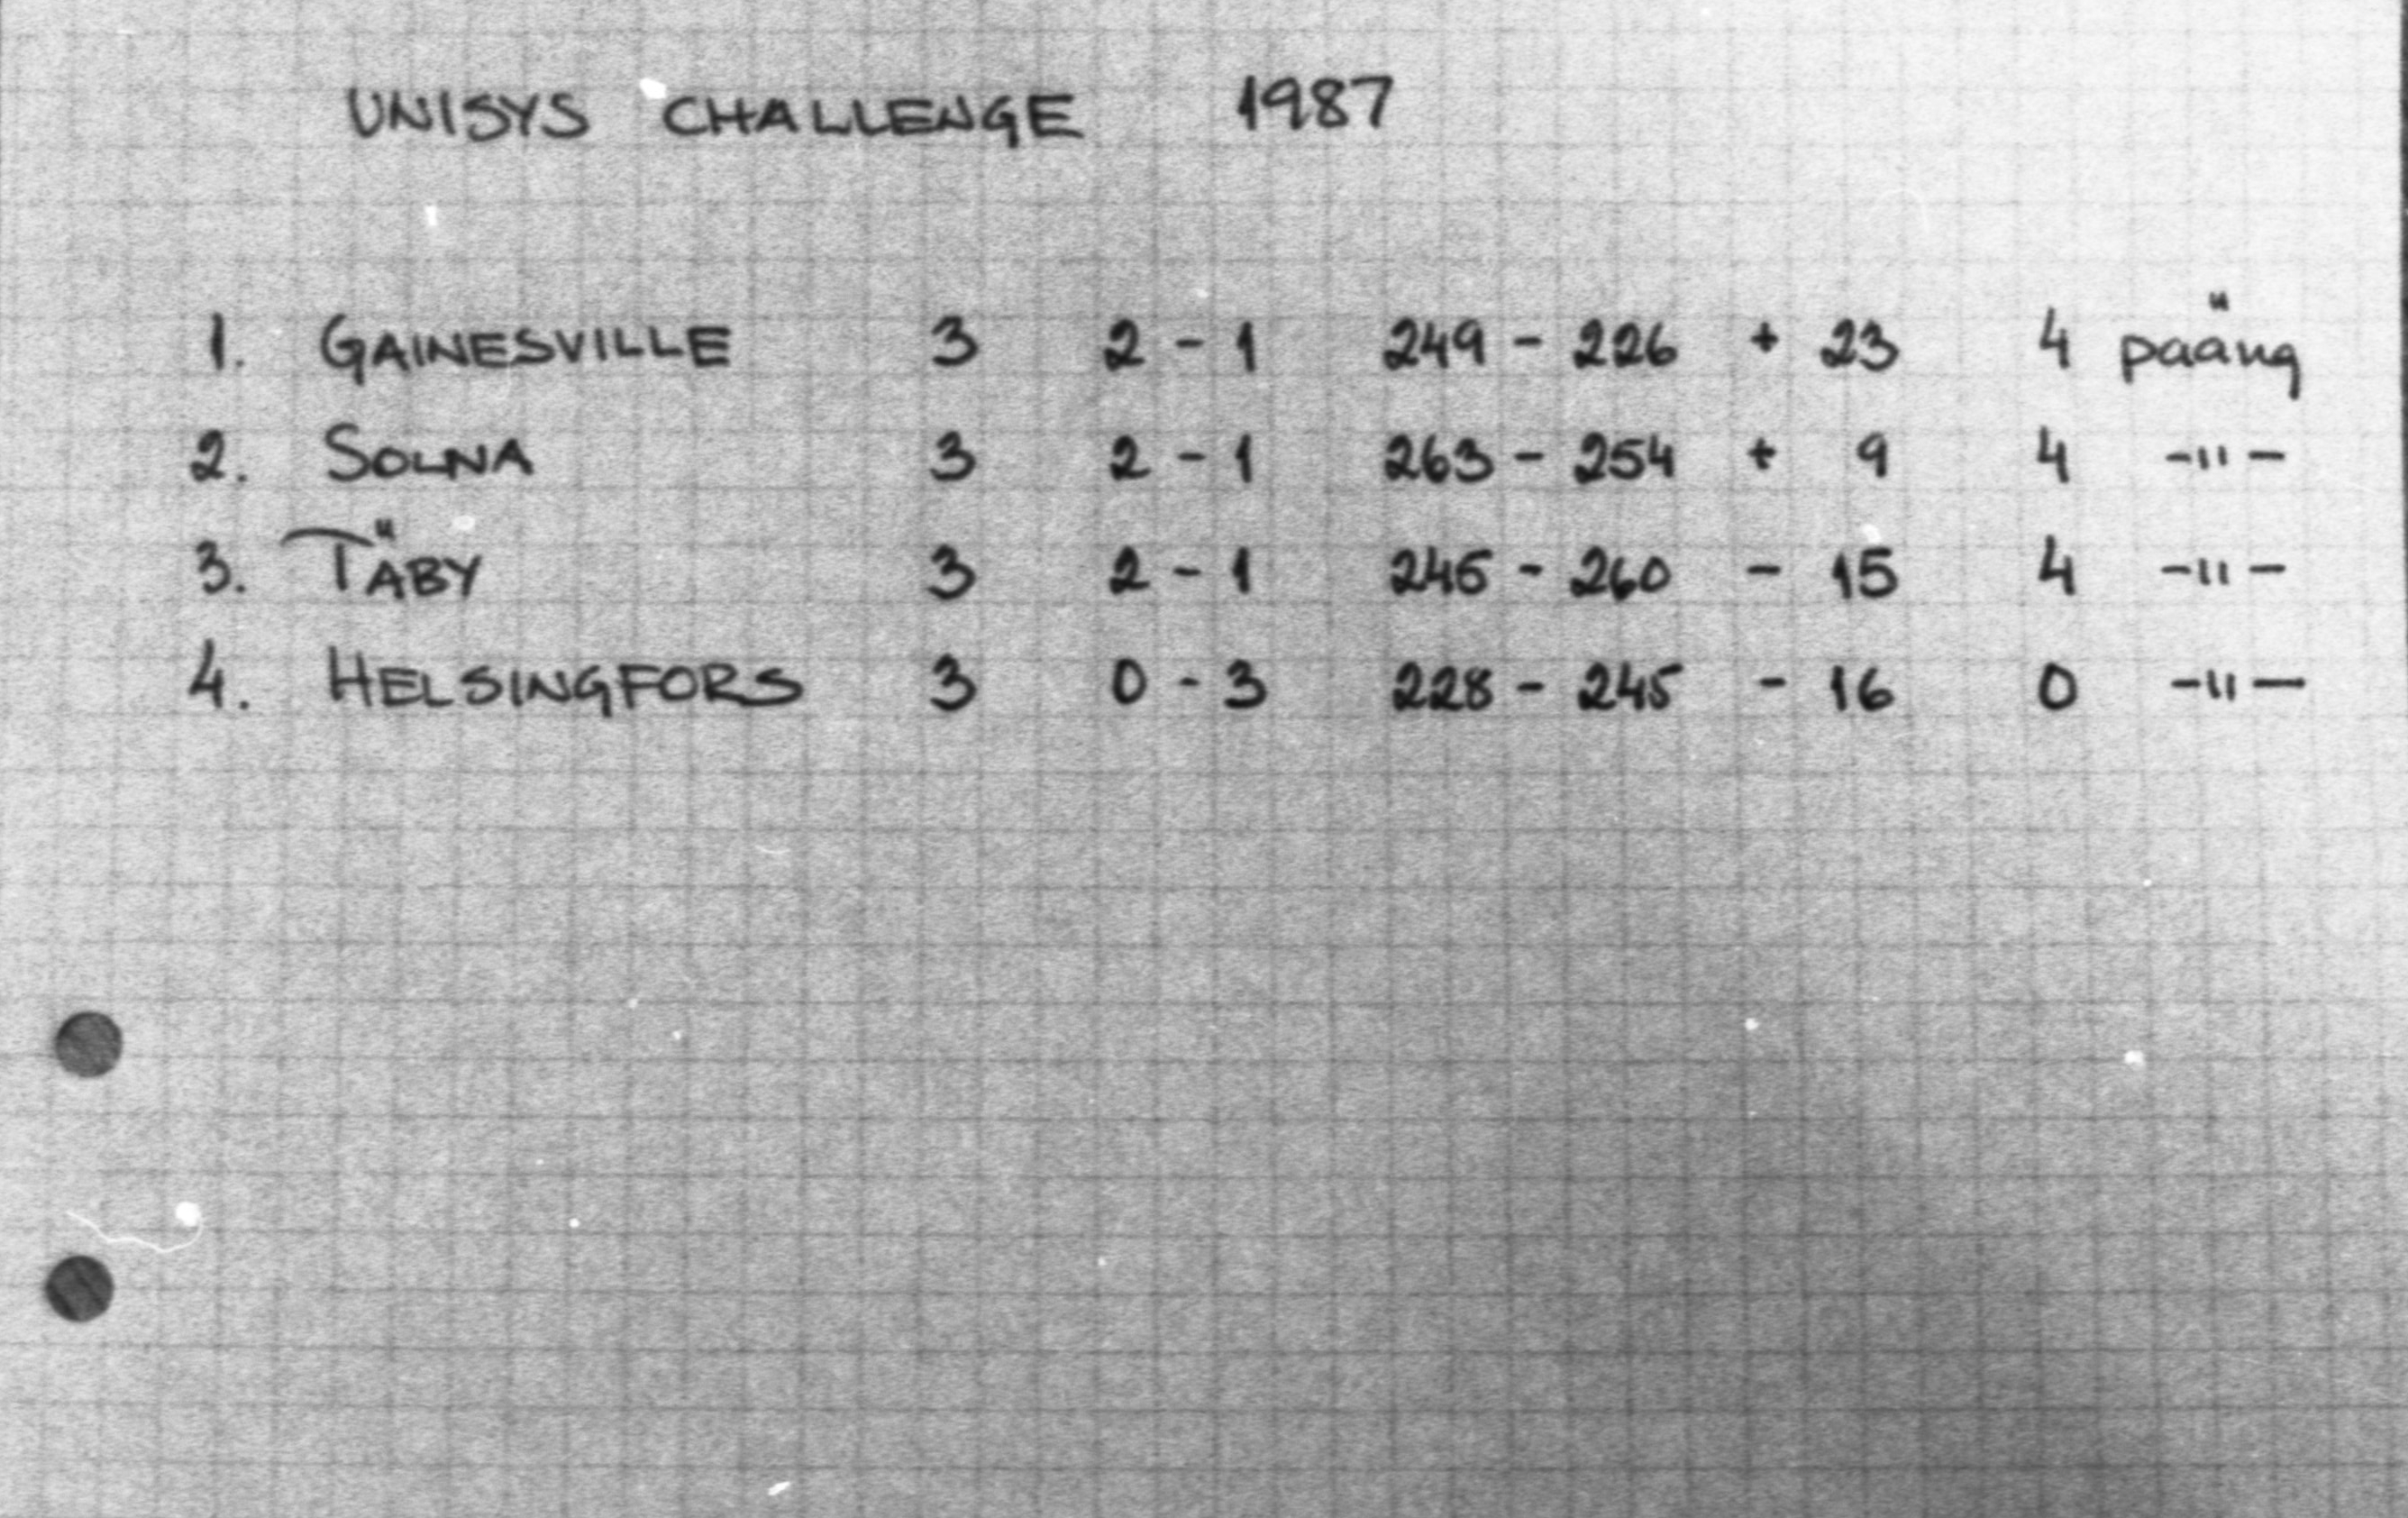 UNISYS CHALLENGE 1987
1. GAINESVILLE 3 2 - 1 249 - 226 + 23 4 poäng
2. SOLNA 3 2 - 1 263 - 254 + 9 4 -"-
3. TÄBY 3 2 - 1 245 - 260 - 15 4 -"-
4. HELSINGFORS 3 0 - 3 228 - 245 - 16 0 -"-